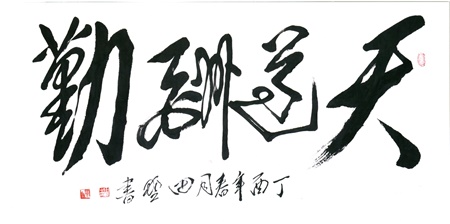 天道酬勤
丁酉年春月書